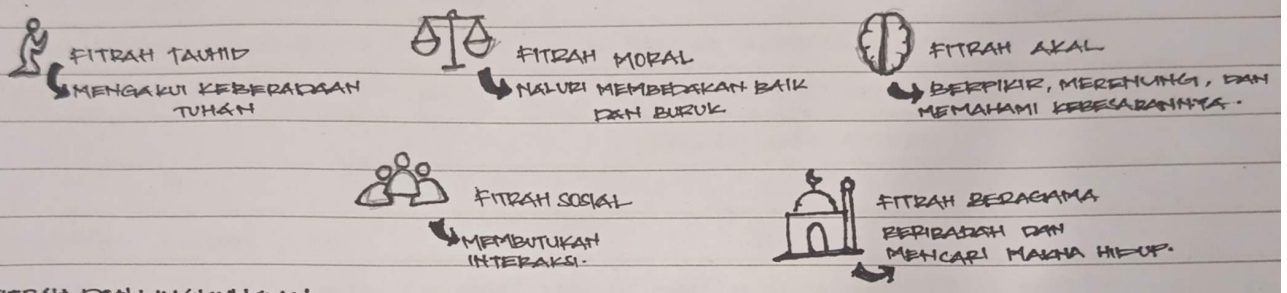 FITRAH TAUHID
MENGAKUI KEBERADAAN
TUHAN
FITRAH MORAL
NALURI MEMBEDAKAN BAIK
DAN BURUK
FITRAH AKAL
BERPIKIR, MERENUNG, DAN
MEMAHAMI KEBESARANNYA.
FITRAH SOSIAL
MEMBUTUKAN
INTERAKSI.
FITRAH BERAGAMA
BERIBADAH DAN
MENCARI MAKNA HIDUP.